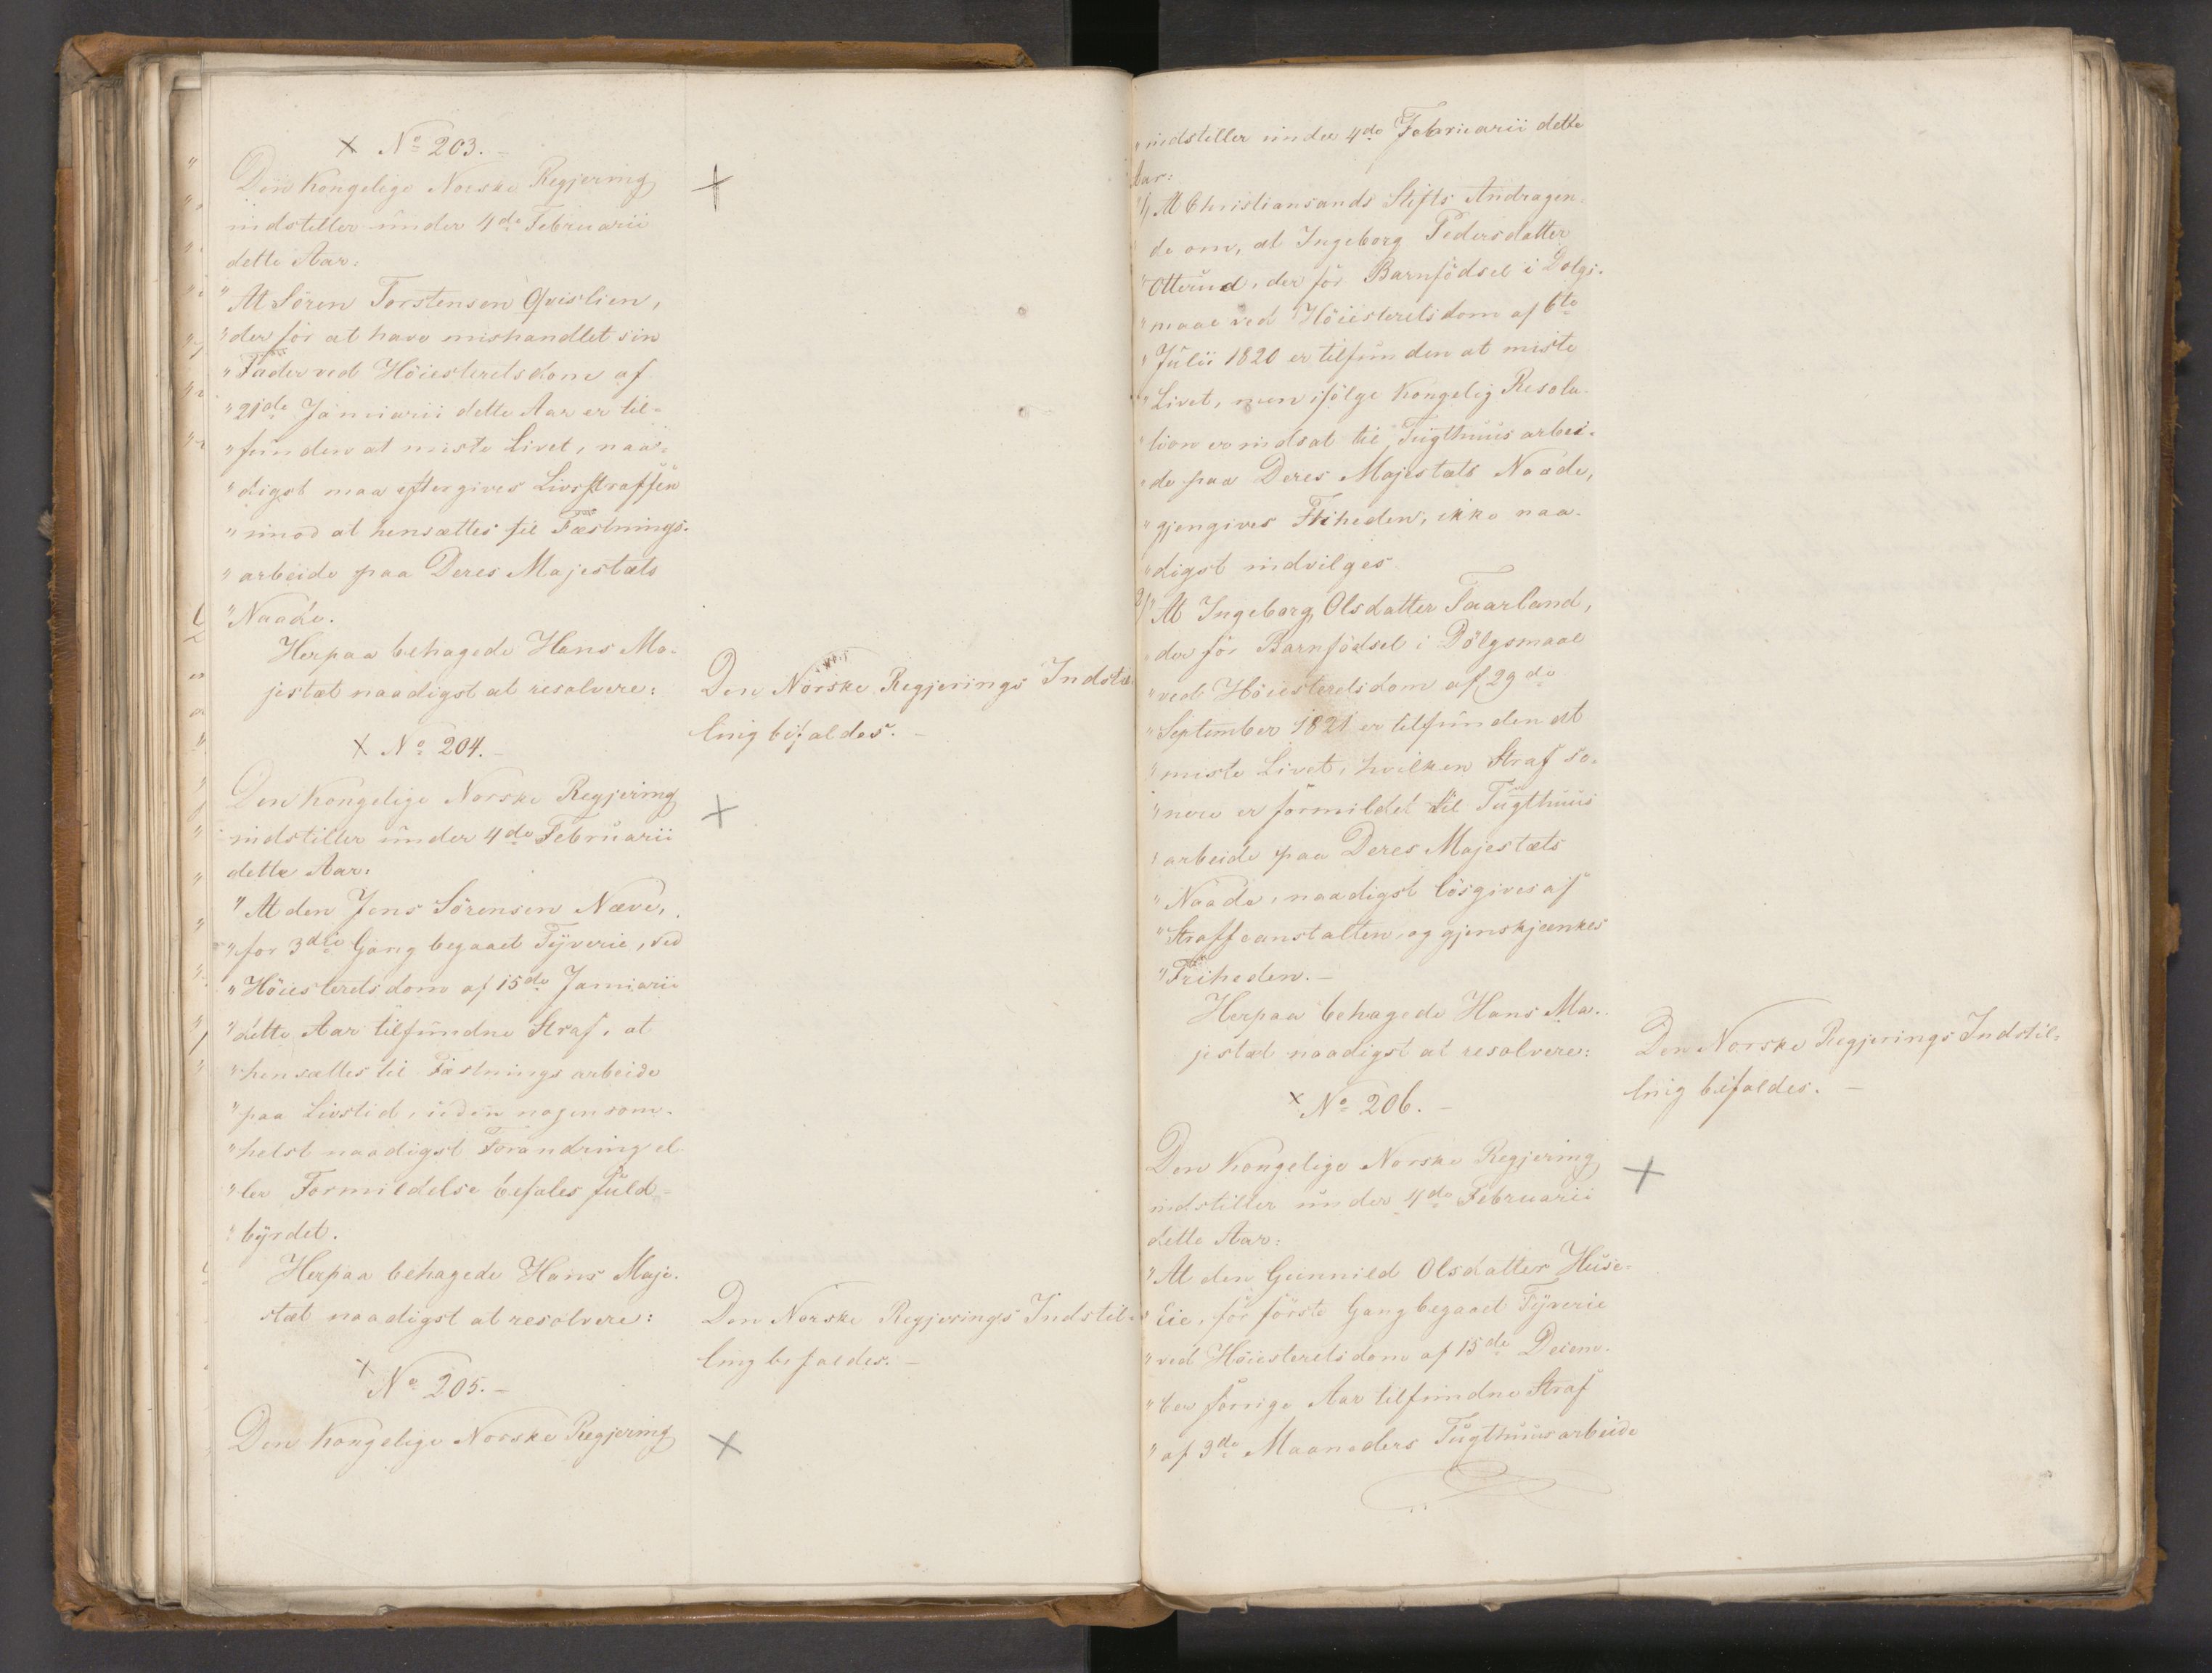 × No 203. –
Den Kongelige Norske Regjering
indstiller under 4de Februarii
dette Aar:
"At Sören Torstensen Qvislien,
"der for at have mishandlet sin
"Fader ved Höiesteretsdom af
"21de Januarii dette Aar er til-
"funden at miste Livet, naa-
"digst maa eftergives Livsstraffen
"imod at hensættes til Fæstnings-
"arbeide paa Deres Majestæts
"Naade.
Herpaa behagede Hans Ma-
jestæt naadigst at resolvere:
Den Norske Regjerings Indstil-
ling bifaldes. –
× No 204. –
Den Kongelige Norske Regjering
indstiller under 4de Februarii
dette Aar:
"At den Jens Sörensen Næve,
"for 3die Gang begaaet Tyverie, ved
"Höiesteretsdom af 15de Januarii
"dette Aar tilfundne Straf, at
"hensættes til Fæstningsarbeide
"paa Livstid, uden nogensom-
"helst naadigst Forandring el-
"ler Formildelse befales fuld-
"byrdet.
Herpaa behagede Hans Maje-
stæt naadigst at resolvere:
Den Norske Regjerings Indstil-
ling bifaldes. –
× No 205. –
Den Kongelige Norske Regjering
indstiller under 4de Februarii dette
Aar:
1) "At Christiansands Stifts Andragen-
"de om, at Ingeborg Pedersdatter
"Otterud, der for Barnfödsel i Dölgs-
"maal ved Höiesteretsdom af 6te
"Julii 1820 er tilfunden at miste
"Livet, men ifölge Kongelig Resolu-
"tion er indsat til Tugthuusarbei-
"de paa Deres Majestæts Naade,
"gjengives Friheden, ikke naa-
"digst indvilges
2) "At Ingeborg Olsdatter Taarland,
"der for Barnfödsel i Dölgsmaal
"ved Höiesteretsdom af 29de
"September 1821 er tilfunden at
"miste Livet, hvilken Straf se-
"nere er formildet til Tugthuus
"arbeide paa Deres Majestæts
"Naade, naadigst lösgives af
"Straffeanstalten, og gjenskjænkes
"Friheden. –
Herpaa behagede Hans Ma-
jestæt naadigst at resolvere:
Den Norske Regjerings Indstil-
ling bifaldes. –
× No 206. –
Den Kongelige Norske Regjering
indstiller under 4de Februarii
dette Aar:
"At den Gunnild Olsdatter Huse-
"Eie, for förste Gang begaaet Tyverie
"ved Höiesteretsdom af 15de Decem-
"ber forrige Aar tilfundne Straf
"af 3de Maaneders Tugthuusarbeide